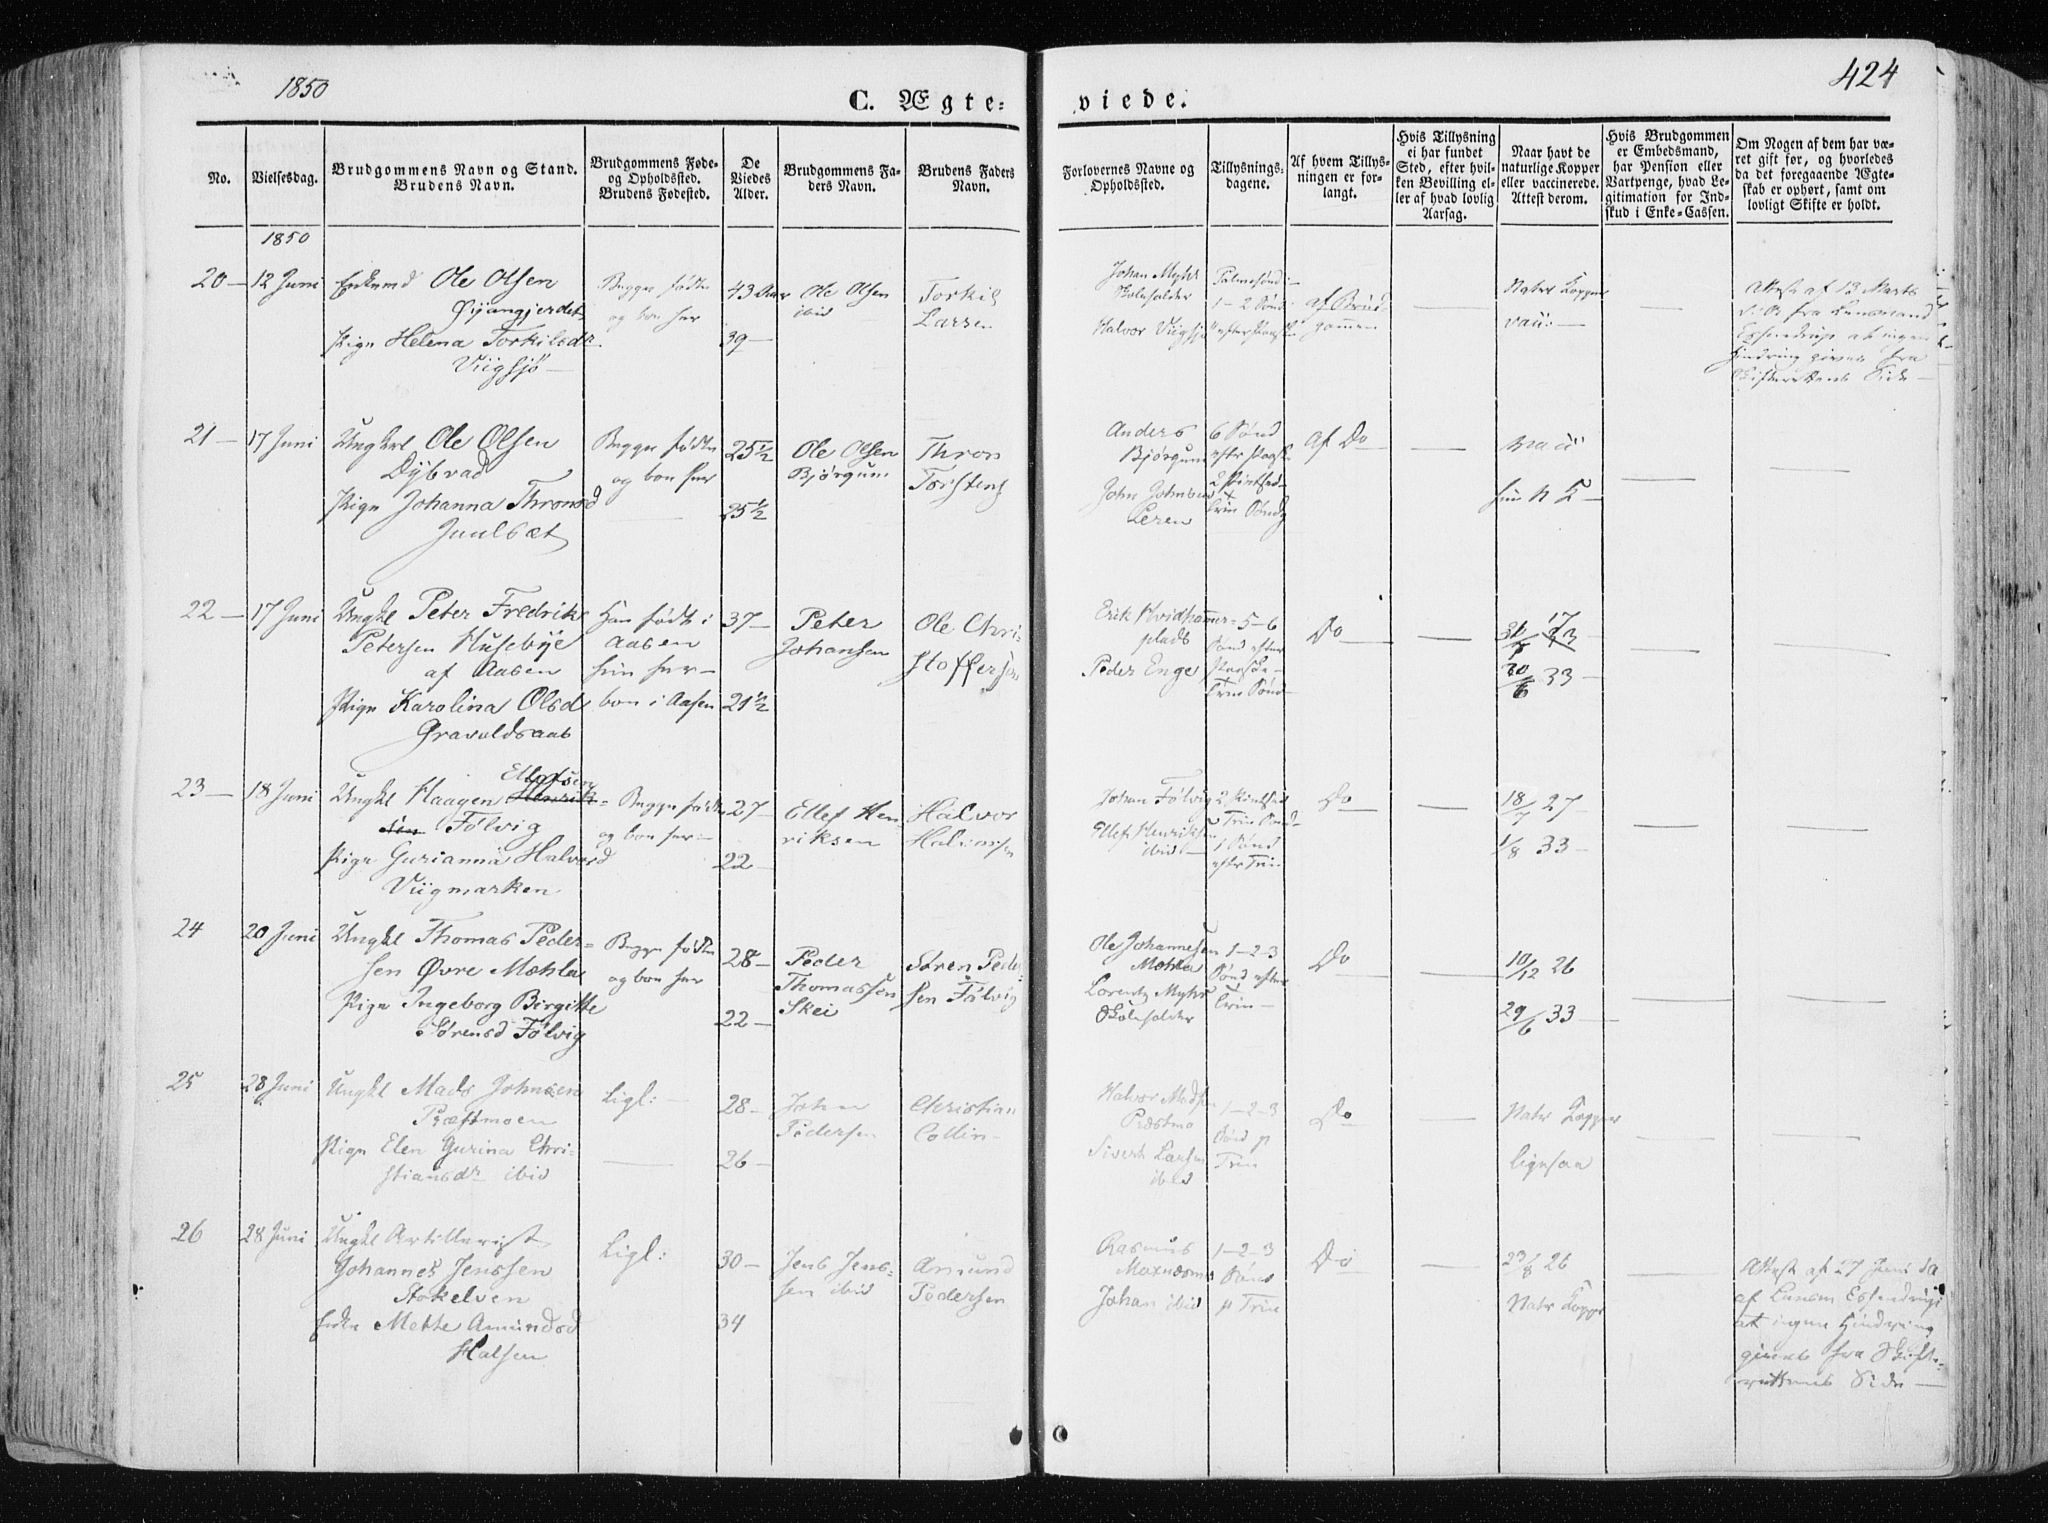 1850
424
C. Ægte-
viede.
No.
Vielsesdag.
Brudgommens Navn og Stand.
Brudens Navn.
Brudgommens Føde-
og Opholdssted.
Brudens Fødested.
De
Viedes
Alder.
Brudgommens Fa-
ders Navn.
Brudens Faders
Navn.
Forlovernes Navne og
Opholdssted.
Tillysnings-
dagene.
Af hvem Tillys-
ningen er for-
langt.
Hvis Tillysning
ei har fundet
Sted, efter hvil-
ken Bevilling el-
ler af hvad lovlig
Aarsag.
Naar havt de
naturlige Kopper
eller vaccinerede.
Attest derom.
Hvis Brudgommen
er Embedsmand,
har Pension eller
Vartpenge, hvad Le-
gitimation for Ind-
skud i Enke-Cassen.
Om Nogen af dem har væ-
ret gift før, og hvorledes
da det foregaaende Ægte-
skab er ophørt, samt om
lovligt Skifte er holdt.
1850
20 — 12 Juni
Enkemd Ole Olsen
Pige Helena Torkilsdr.
Viigsjø —
Begge fødte
og boe her
43 Aar
39 —
Ole Olsen
ibid
Torkil
Larsen
Johan Myhr
Skoleholder
Halvor Viigsjø
Palmesønd-
1-2 Sønd
efter Paaske
af Brud-
gommen
Natr Kopper
vacc: —
Attest af 13 Marts
d. A. fra Lensmand
Essendrup at ingen
Hindring gives fra
Skifterettens Side —
21 — 17 Juni
Ungkl Ole Olsen
Dybvad
Pige Johanna Thronsd
Juulsæt
Begge fødte
og boe her
25½
25½
Ole Olsen
Bjørgum
Thron
Torstens
Anders
Bjørgum
John Johnsen
Leren
6 Sønd
efter Paaske
2 Pintsed-
Trin Søndg
af Do
vacc
hun N K —
22 — 17 Juni
Ungkl Peter Fredrik
Petersen Husebye
af Aasen
Pige Karolina Olsd
Gravaldsaas
Han født i
Aasen
hun her —
boe i Aasen
37 —
21½
Peter
Johansen
Ole Chri-
stoffersen
Erik Hvidhammer-
plads
Peder Enge
5-6
Sønd efter
Paaske —
Trin Sønd —
Do
17
20/6 33 —
23 — 18 Juni
Ellefsen
Ungkl Haagen Henrik-
sen Følvig
Pige Gurianna Halvord
Viigmarken
Begge fødte
og boe her —
27 —
22 —
Ellef Hen-
riksen
Halvor
Johan Følvig
Ellef Henriksen
ibid —
2 Pintsed
Trin Sønd —
1 Sønd
efter Trin
Do
18/7 27 —
1/8 33 —
24 20 Juni
Ungkl Thomas Peder-
sen Øvre Mæhla
Pige Ingeborg Birgitte
Sørensd Følvig
Begge fødte
og boe her
28 —
22 —
Peder
Thomassen
Skei
Søren Peder-
sen Følvig
Ole Johannesen
Mæhla
Lorentz Myhr
Skoleholder
1-2-3
Sønd efter
Trin —
Do
10/12 26
29/6 33 —
25 28 Juni
Ungkl Mads Johnsen
Præstmoen
Pige Elen Gurina Chri-
stiansdr ibid
Ligl: —
28 —
26 —
John
Pedersen
Christian
Collin —
Halvor Madsen
Præstmo
Sivert Larsen
ibid
1-2-3
Sønd p
Trin
Do
Natr Kopper
ligesaa
26 28 Juni
Ungkl Artillerist
Johannes Jenssen
Stokelven
Enke Mette Amundsd
Halsen
Ligl:
30 —
34
Jens Jens-
sen ibid
Amund
Pedersen
Rasmus
Johan ibid
1-2-3
Sønd
p Trin
Do
23/8 26
Natr Kopper
Attest af 27 Juni d A
af Lensm Essendrup
at ingen Hindring
gives fra Skifte-
rettens Side —